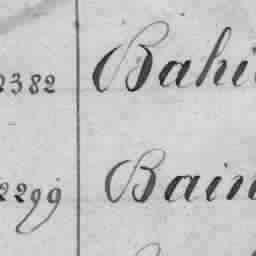 2382 Bahi
2299 Bain